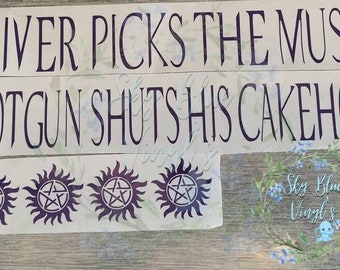 IVER PICKS THE MUS
OTGUN SHUTS HIS CAKEHO
Sky Blu
Vinyl's